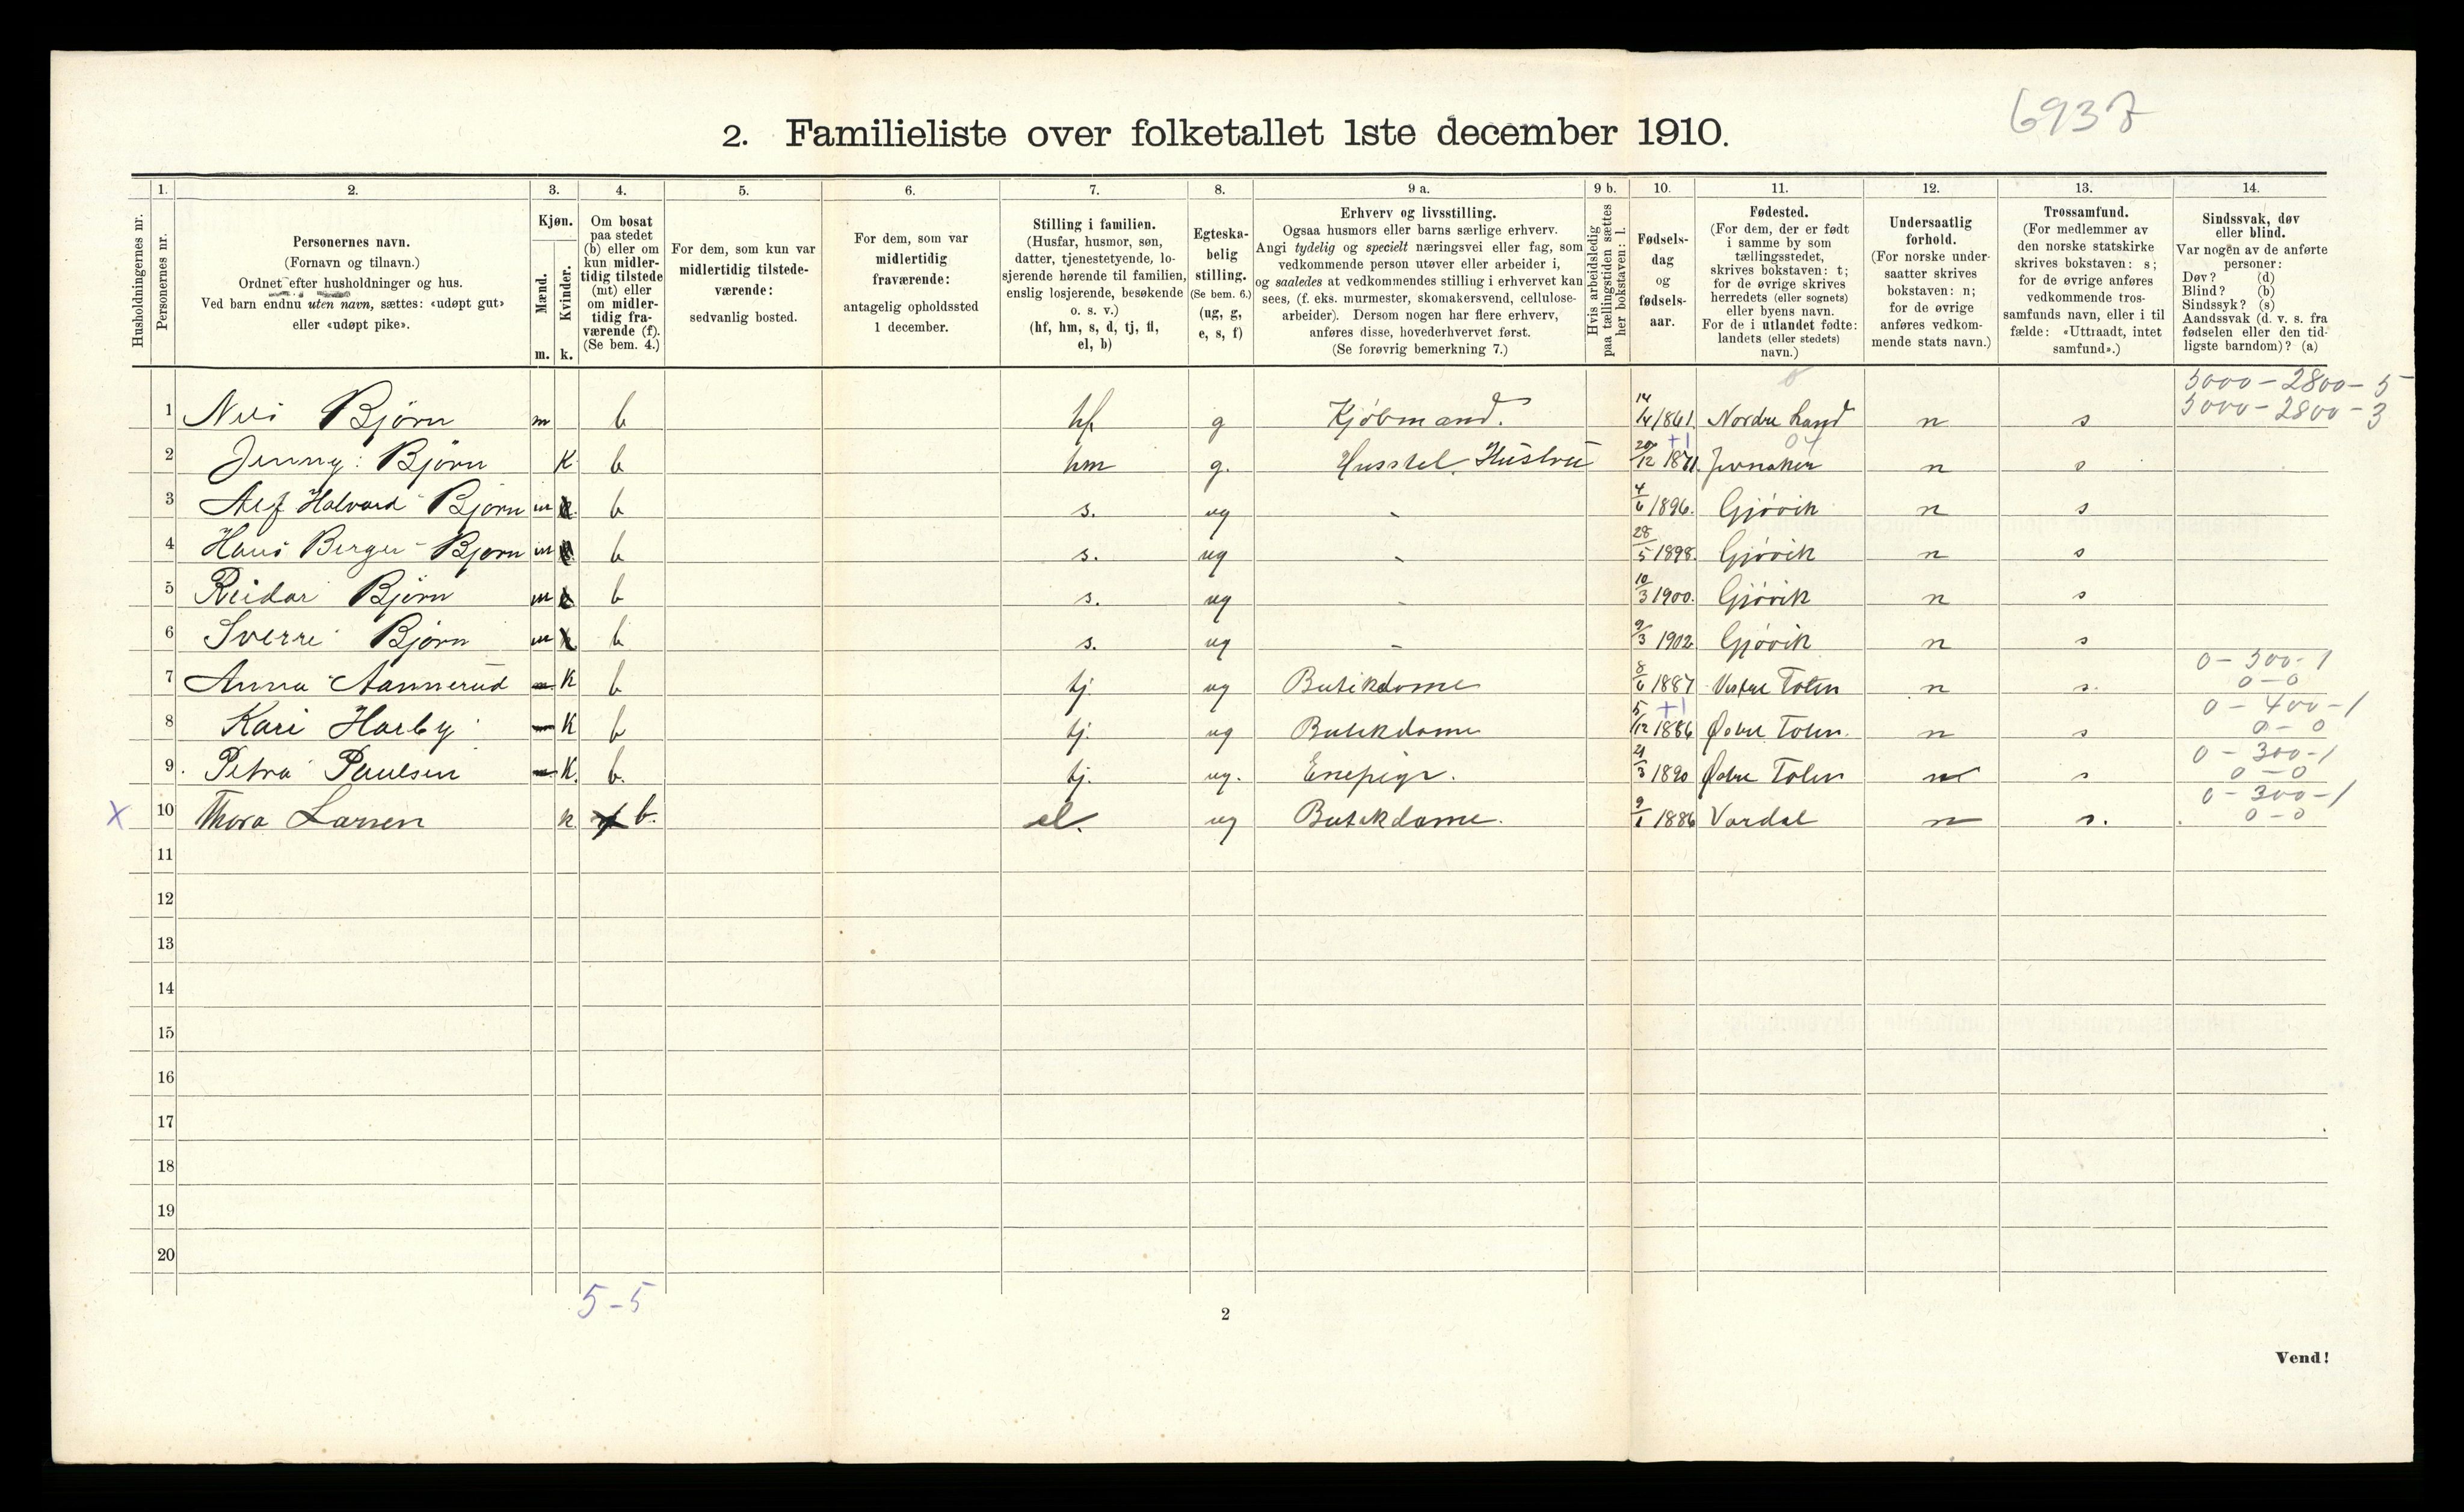 6937
2. Familieliste over folketallet 1ste december 1910.
Husholdningernes nr.
1. Personernes nr.
2. Personernes navn.
(Fornavn og tilnavn.)
Ordnet efter husholdninger og hus.
Ved barn endnu uten navn, sættes: «udøpt gut»
eller «udøpt pike».
3. Kjøn.
Mænd. m.
Kvinder. k.
4. Om bosat
paa stedet
(b) eller om
kun midler-
tidig tilstede
(mt) eller
om midler-
tidig fra-
værende (f).
(Se bem. 4.)
5. For dem, som kun var
midlertidig tilstede-
værende:
sedvanlig bosted.
6. For dem, som var
midlertidig
fraværende:
antagelig opholdssted
1 december.
7. Stilling i familien.
(Husfar, husmor, søn,
datter, tjenestetyende, lo-
sjerende hørende til familien,
enslig losjerende, besøkende
o. s. v.)
(hf, hm, s, d, tj, fl,
el, b)
8. Egteska-
belig
stilling.
(Se bem. 6.)
(ug, g,
e, s, f)
9 a. Erhverv og livsstilling.
Ogsaa husmors eller barns særlige erhverv.
Angi tydelig og specielt næringsvei eller fag, som
vedkommende person utøver eller arbeider i,
og saaledes at vedkommendes stilling i erhvervet kan
sees, (f. eks. murmester, skomakersvend, cellulose-
arbeider). Dersom nogen har flere erhverv,
anføres disse, hovederhvervet først.
(Se forøvrig bemerkning 7.)
9 b. Hvis arbeidsledig
paa tællingstiden sættes
her bokstaven: l.
10. Fødsels-
dag
og
fødsels-
aar.
11. Fødested.
(For dem, der er født
i samme by som
tællingsstedet,
skrives bokstaven: t;
for de øvrige skrives
herredets (eller sognets)
eller byens navn.
For de i utlandet fødte:
landets (eller stedets)
navn.)
12. Undersaatlig
forhold.
(For norske under-
saatter skrives
bokstaven: n;
for de øvrige
anføres vedkom-
mende stats navn.)
13. Trossamfund.
(For medlemmer av
den norske statskirke
skrives bokstaven: s;
for de øvrige anføres
vedkommende tros-
samfunds navn, eller i til
fælde: «Uttraadt, intet
samfund».)
14. Sindssvak, døv
eller blind.
Var nogen av de anførte
personer:
Døv? (d)
Blind? (b)
Sindssyk? (s)
Aandssvak (d. v. s. fra
fødselen eller den tid-
ligste barndom)? (a)
5000 - 2800 - 5
1 Nils Bjørn m b hf g Kjøbmand. 14/4 1861. Nordre Land n s 5000 - 2800 - 3
2 Jenny Bjørn K b hm g. Husstel. Hustru 20/12 1871. +1 Jevnaker n s
3 Alf Halvard Bjørn m b s. ug - 4/6 1896. Gjøvik n s
4 Hans Berger Bjørn m b s. ug - 28/5 1898. Gjøvik n s
5 Reidar Bjørn m b s. ug - 10/3 1900. Gjøvik n s
6 Sverre Bjørn m b s. ug - 9/3 1902 Gjøvik n s
7 Anna Aannerud K b tj ug Butikdame 8/6 1887 Vestre Toten n s. 0 - 500 - 1 0 - 0
8 Kari Harby K b tj. ug Butikdame 5/12 1886 +1 Østre Toten. n s 0 - 400 - 1 0 - 0
9. Petra Paulsen K. b. tj. ug. Enepige. 21/3 1890 Østre Toten n s 0 - 300 - 1 0 - 0
X 10 Thora Larsen k b. el. ug Butikdame. 9/1 1886 Vardal n s. 0 - 300 - 1 0 - 0
11
12
13
14
15
16
17
18
19
20
5 - 5
2
Vend!